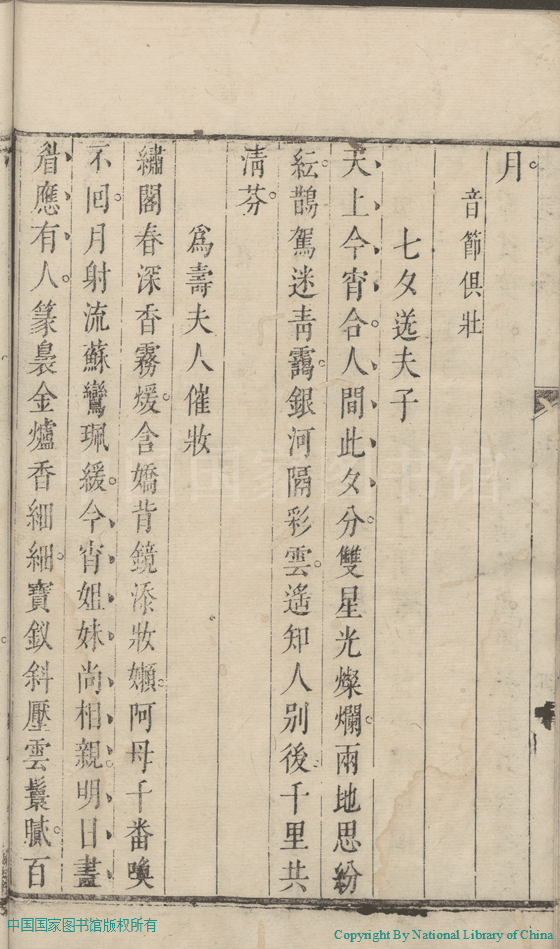 月。
音節俱壯
七夕送夫子
天上今宵合。人間此夕分。雙星光燦爛。兩地思紛
紜。鵲駕迷青靄。銀河隔彩雲。遙知人別後。千里共
清芬。
為壽夫人催妝
繡閣春深香霧煖。含嬌背鏡添妝嬾。阿母千番喚
不回。月射流蘇鸞珮緩。今宵姐妹尚相親。明日畫
眉應有人。篆裊金爐香細細。寶釵斜壓雲鬟膩。百
中国国家图书馆版权所有
Copyright By National Library of China